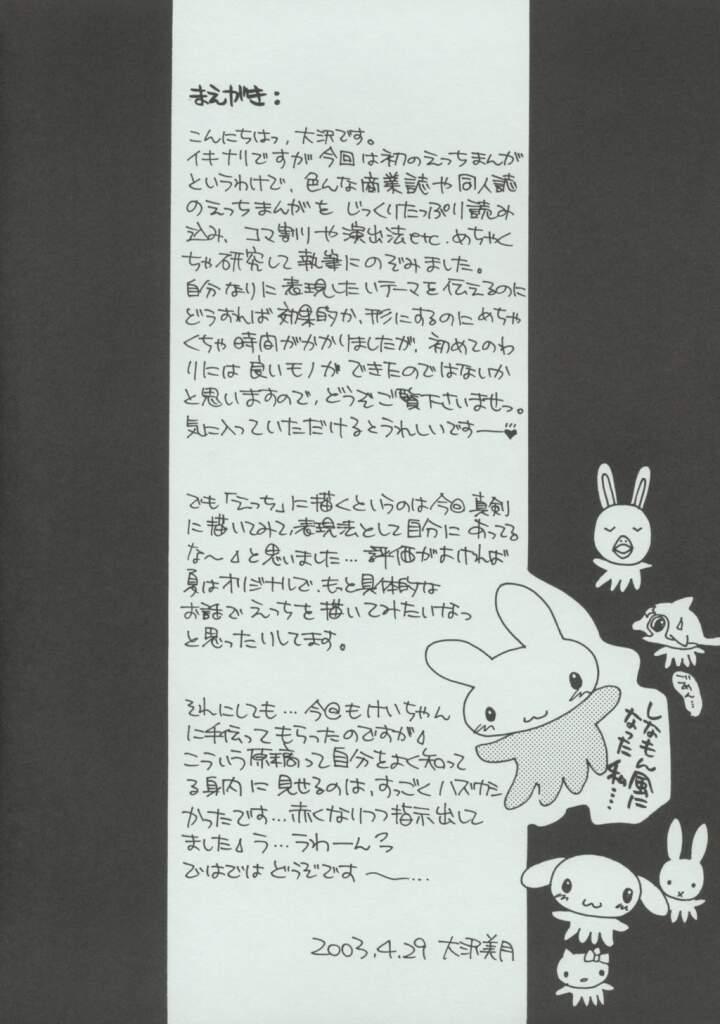 まえがき：
こんにちはっ，大沢です。
イキナリですが今回は初のえっちまんが
というわけで、色んな商業誌や同人誌
のえっちまんがを じっくりたっぷり読み
込み、コマ割りや演出法etc.めちゃく
ちゃ研究して執筆にのぞみました。
自分なりに表現したいテーマを伝えるのに
どうすれば効果的か、形にするのにめちゃ
くちゃ時間がかかりましたが、初めてのわ
りには良いモノができたのではないか
と思いますので、どうぞご覧下さいませっ。
気に入っていただけるとうれしいですー♥
でも「えっち」に描くというのは今回真剣
に描いてみて、表現法として自分にあってる
な〜♪と思いました…評価がよければ
夏はオリジナルで、もっと具体的な
お話でえっちを描いてみたいなっ
と思ったりしてます。
それにしても…今回もけいちゃん
に手伝ってもらったのですが♪
こういう原稿って自分をよく知って
る身内に見せるのは、すっごくハズカシ
かったです…赤くなりつつ指示出して
ました♪う…うわーんっ
ではではどうぞです〜…
2003.4.29 大沢美月
ごめん…
しなもん風に
なった私…